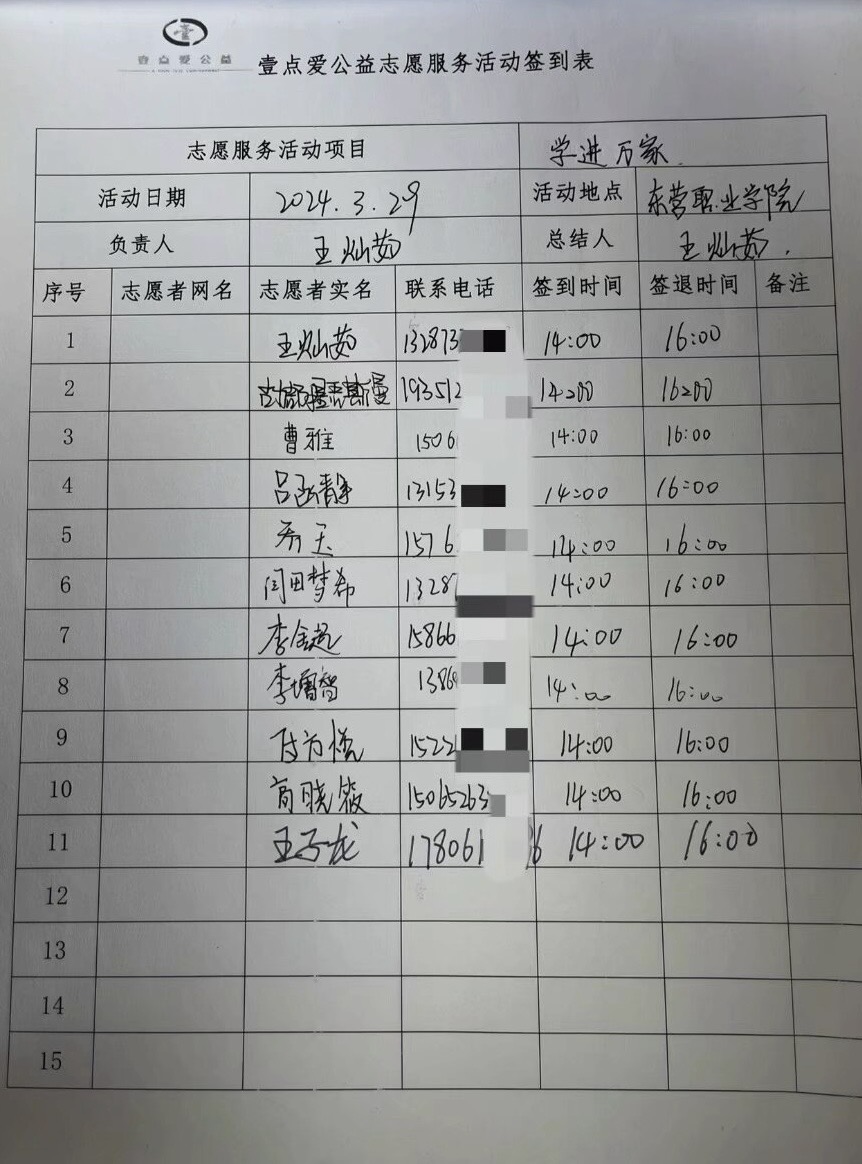 壹点爱公益
壹点爱公益志愿服务活动签到表
志愿服务活动项目 学进万家
活动日期 2024.3.29 活动地点 东营职业学院
负责人 王灿茹 总结人 王灿茹.
序号 志愿者网名 志愿者实名 联系电话 签到时间 签退时间 备注
1 王灿茹 132873 14:00 16:00
2 193512 14:00 16:00
3 曹雅 1506 14:00 16:00
4 吕函静 13153 14:00 16:00
5 齐玉 1576 14:00 16:00
6 闫田梦希 1328 14:00 16:00
7 李金超 15866 14:00 16:00
8 李增智 1386 14:00 16:00
9 1522 14:00 16:00
10 商晓筱 15065263 14:00 16:00
11 王子龙 178061 6 14:00 16:00
12
13
14
15